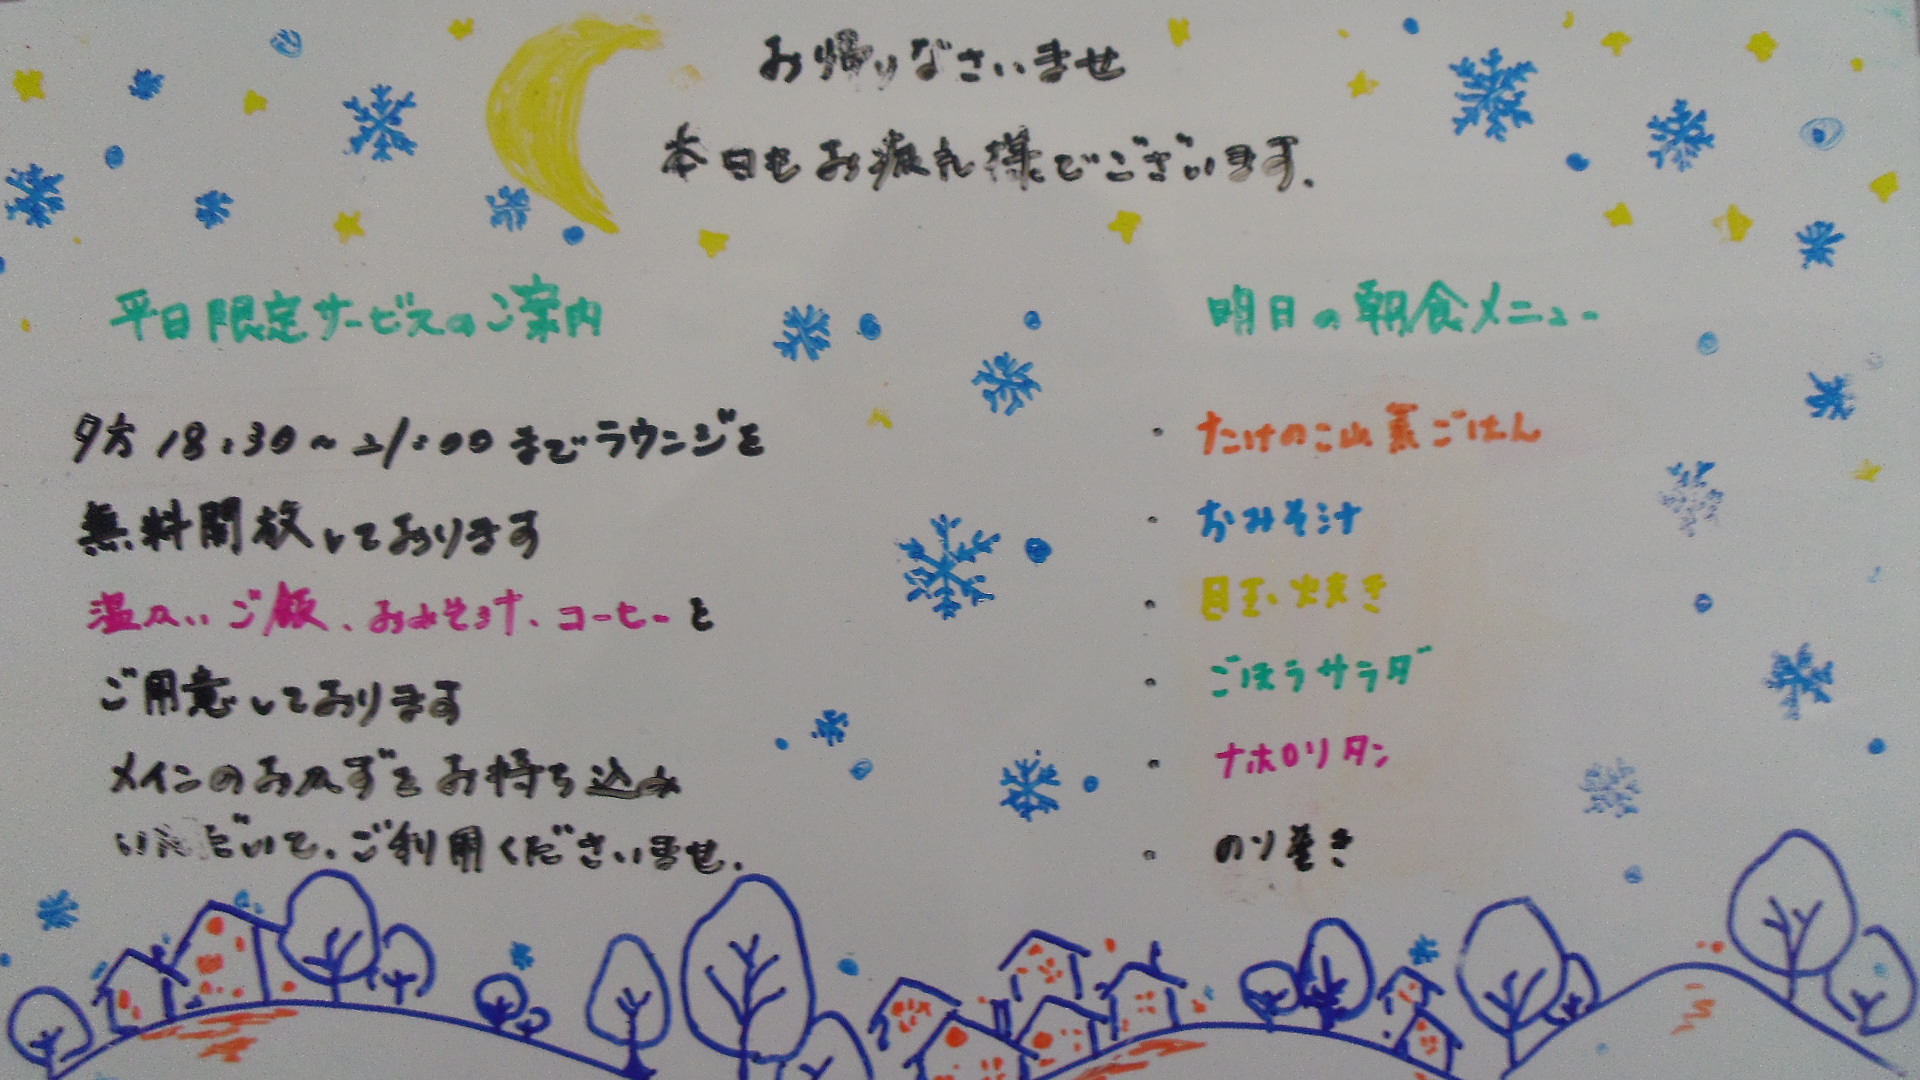 お帰りなさいませ
本日もお疲れ様でございます.
平日限定サービスのご案内
夕方 18:30~21:00までラウンジを
無料開放しております
温かいご飯、おみそ汁、コーヒーを
ご用意しております
メインのおかずをお持ち込み
いただいて、ご利用くださいませ.
明日の朝食メニュー
・たけのこ山菜ごはん
・おみそ汁
・目玉焼き
・ごぼうサラダ
・ナポリタン
・のり巻き